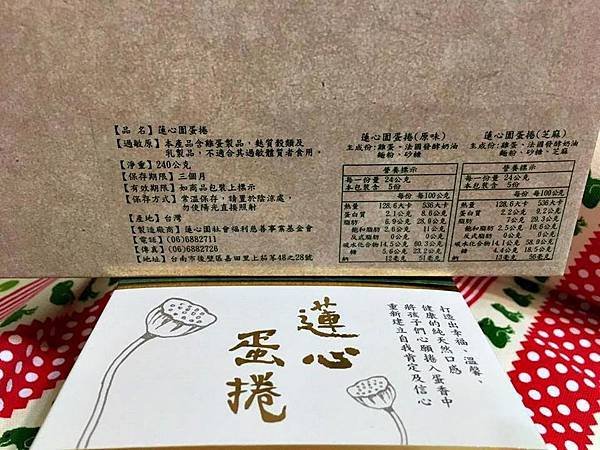 【品 名】蓮心園蛋捲
【過敏原】本產品含雞蛋製品、麩質穀類及
乳製品，不適合其過敏體質者食用。
【淨重】240公克
【保存期限】三個月
【有效期限】如商品包裝上標示
【保存方式】常溫保存，請置於陰涼處，
勿使陽光直接照射
【產地】台灣
【製造廠商】蓮心園社會福利慈善事業基金會
【電話】(06)6882711
【傳真】(06)6882726
【地址】台南市後壁區嘉田里上茄苳48之28號
蓮心園蛋捲(原味)
主成份:雞蛋、法國發酵奶油
麵粉、砂糖
營養標示
每一份量 24公克
本包裝含 5份
每份 每100公克
熱量 128.6大卡 536大卡
蛋白質 2.1公克 8.6公克
脂肪 6.9公克 28.9公克
飽和脂肪 2.6公克 11公克
反式脂肪 0公克 0公克
碳水化合物 14.5公克 60.3公克
糖 5.6公克 23.2公克
鈉 12毫克 51毫克
蓮心園蛋捲(芝麻)
主成份:雞蛋、法國發酵奶油
麵粉、砂糖、芝麻
營養標示
每一份量 24公克
本包裝含 5份
每份 每100公克
熱量 128.6大卡 536大卡
蛋白質 2.2公克 9.2公克
脂肪 7公克 29.1公克
飽和脂肪 2.5公克
反式脂肪 0公克
碳水化合物 14.1公克 58.9公克
糖 4.4公克 18.5公克
鈉 13毫克 56毫克
蓮心
蛋捲
打造出幸福、溫馨、
健康的純天然口感
將孩子們心願捲入蛋香中
重新建立自我肯定及信心